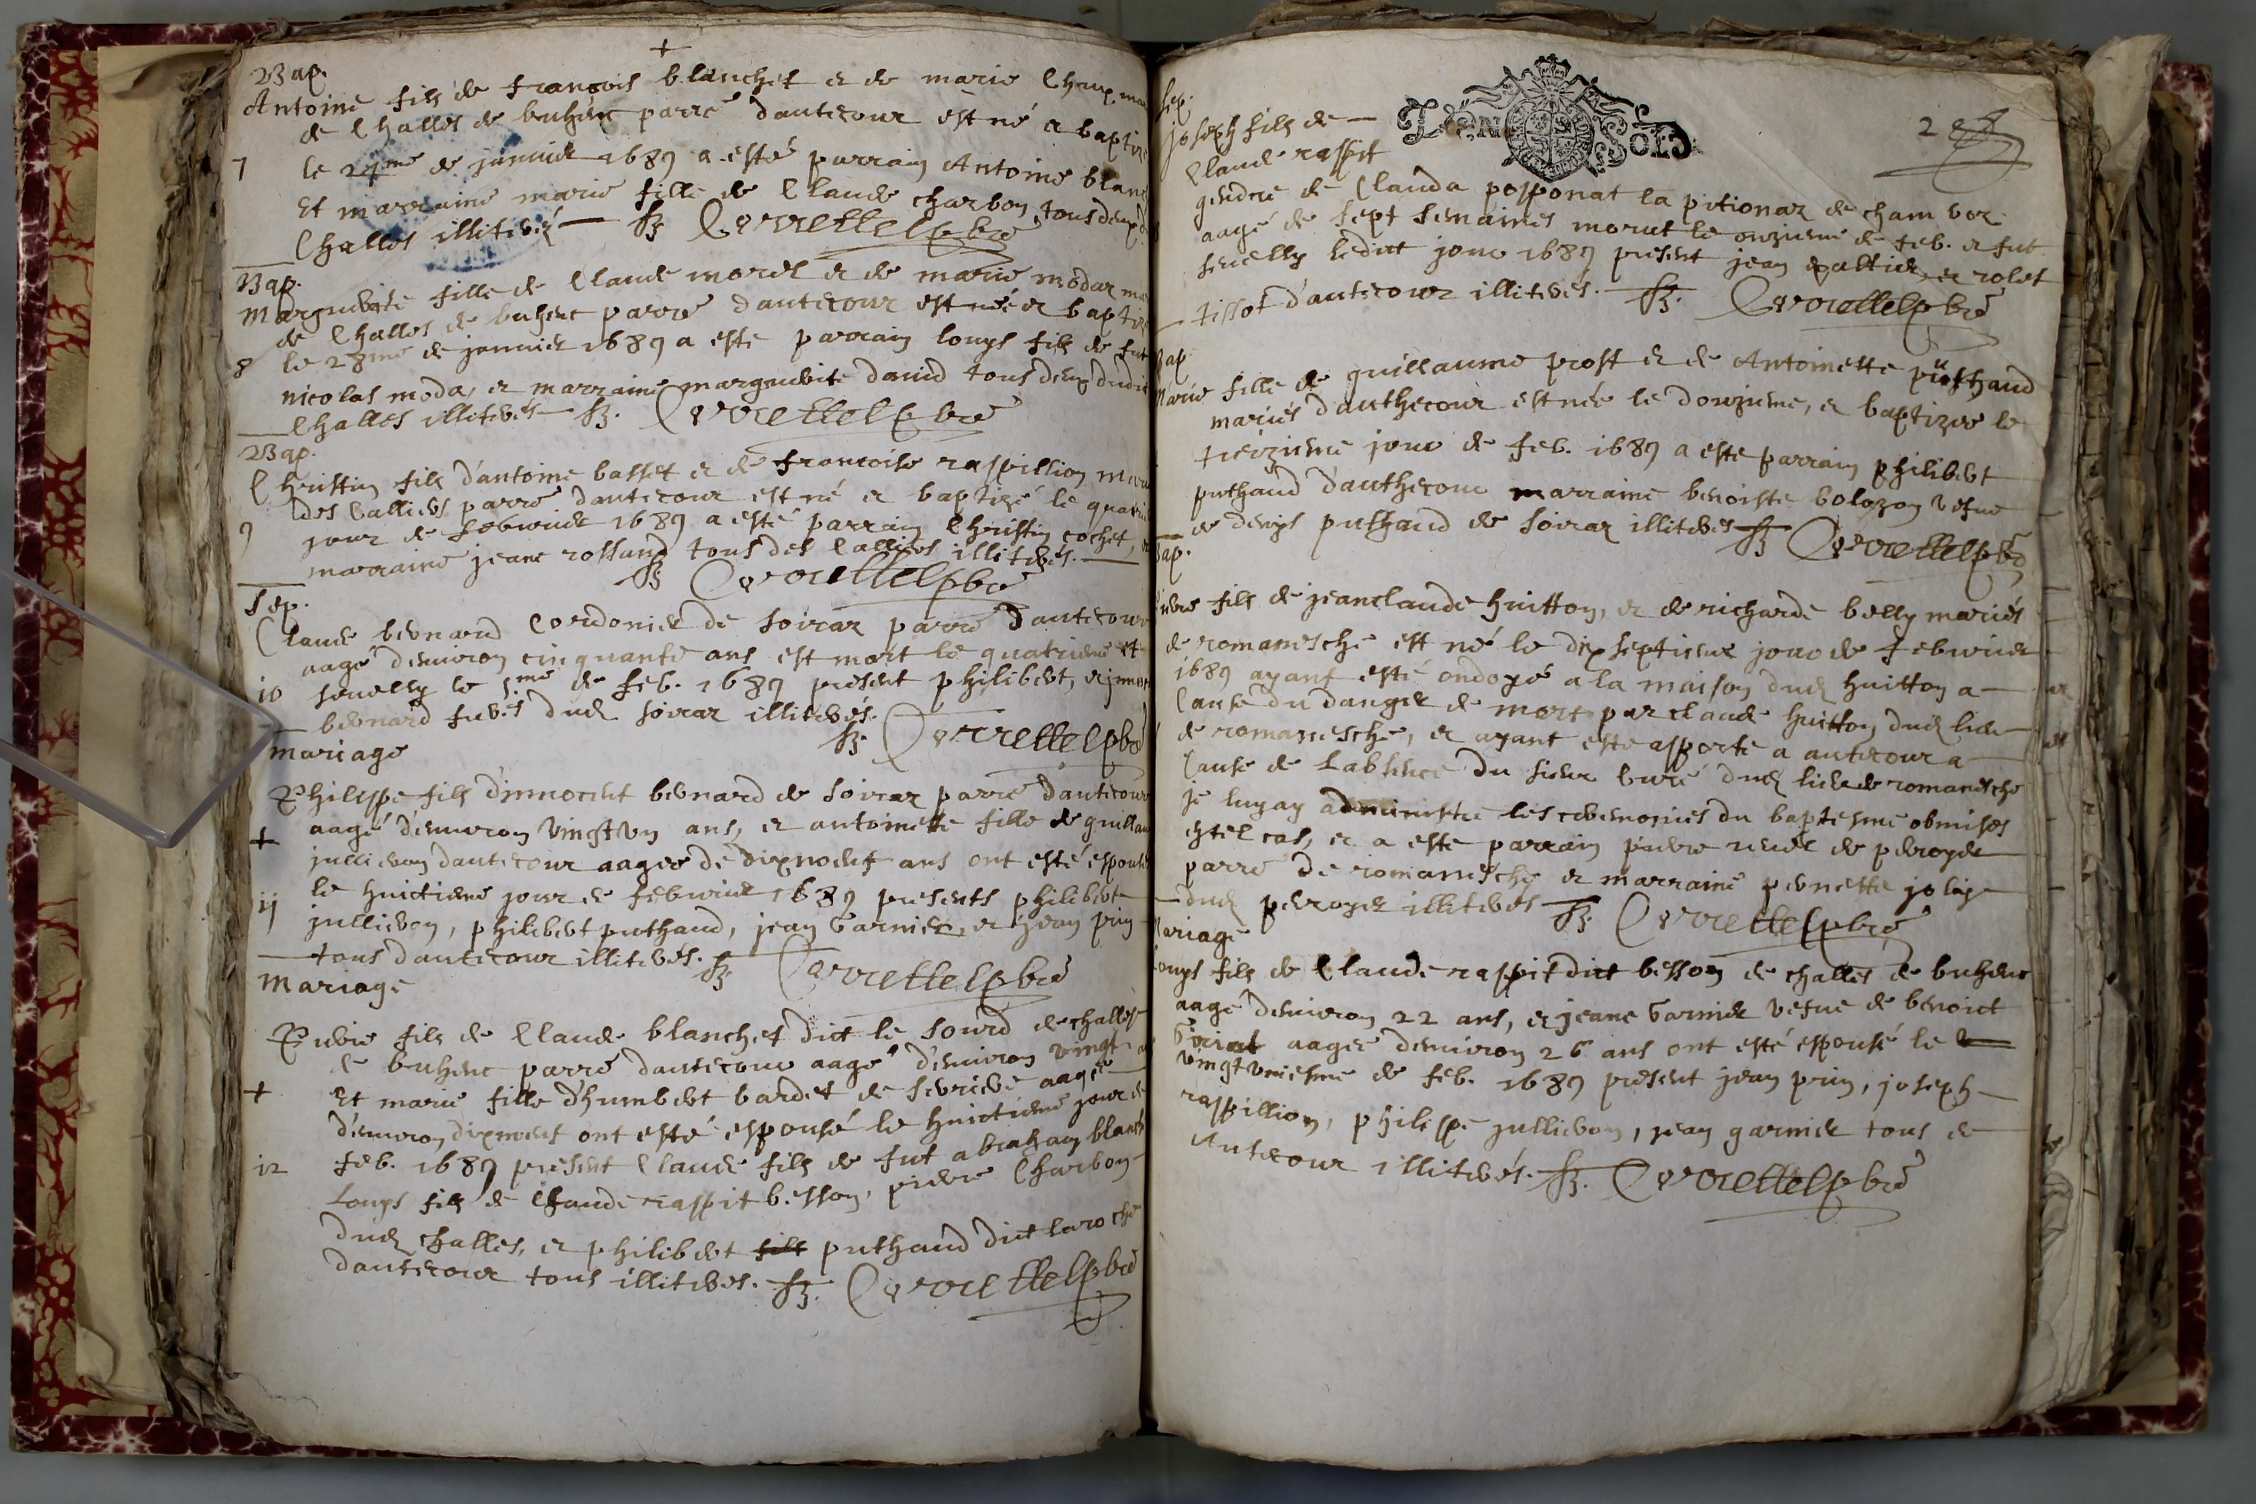 Bap.
Antoine fils de françois blanchet et de marie
de Challes de buhenc parre d'autecour est né et baptizé
7 le 27me de janvier 1689 a esté parrain Antoine
Et marraine marie fille de Claude charbon tous deux
Challes illiterés
Bap.
Marguerite fille de Claude morel et de marie modaz
de Challes de buhenc parre d'autecour est née et baptizé
8 le 28me de janvier 1689 a esté parrain louys fils de fut
nicolas moda, et marraine marguerite david tous deux dudit
Challes illiterés
Bap.
Christin fils d'antoine basset et de francoise raspillion
des Calliers parre d'autecour est né et baptizé le
9 jour de febvrier 1689 a esté parrain Christin cochet,
marraine jeane rolland tous des Calliers illiterés.
Sep.
Claude bernard Cordonier de Soiraz parre d'autecour
aagé d'environ cinquante ans est mort le quatrieme et
10 sevelly le 5.me de feb. 1689 present philibert, et
bernard dud. soiraz illiterés.
Mariage
Philippe fils d'innocent bernard de Soiraz parre d'autecour
aagé d'environ vingt un ans, et antoinette fille de
jullieron d'autecour aagee de dixneuf ans ont esté
le huictieme jour de febvrier 1689 presents philibert
11 jullieron, philibert puthaud, jean Garnier, et jean prin
tous d'autecour illiterés.
Mariage
Pierre fils de Claude blanchet dict le sourd de challes
de buhenc parre d'autecour aagé d'environ vingt
Et marie fille d'humbert bardet de sevriere aagee
d'environ dixneuf ont esté espousé le huictieme jour de
12 feb. 1689 present Claude fils de fut abraham
Louys fils de Claude raspit besson, pierre Charbon
dud. challes, et philibert puthaud dict laroche
d'autecour tous illiterés.
Sep.
joseph fils de
Claude raspit
gendre de Clauda posponat la pitionaz de cham
aagé de sept semaines morut le onzieme de feb. et fut
sevelly ledict jour 1689 present jean galtier, et rolet
tissot d'autecour illiterés.
Marie fille de guillaume prost et de Antoinette puthaud
mariés d'authecour est née le douzieme, et baptizee le
treizieme jour de feb. 1689 a esté parrain philibert
puthaud d'authecour marraine benoiste bolozon vefue
de denys puthaud de soiraz illiterés
fils de jeanclaude huitton, et de richarde belly mariés
de romanesche est né le dixseptieme jour de febvrier
1689 ayant esté ondoyé a la maison dud. huitton a
Cause du danger de mort par claude huitton dud. lieu
de romanesche, et ayant esté apporté a autecour a
Cause de l'absence du sieur Curé dud. lieu de romanesche
Je luy ay administré les ceremonies du baptesme obmises
en tel cas, et a esté parrain pierre de peroyer
parre de romanesche et marraine pernette
dud. peroyer illiterés
Mariage
Louys fils de Claude raspit dict besson de challes de buhenc
aagé d'environ 22 ans, et jeane Garnier vefue de benoict
aagee d'environ 26 ans ont esté espousé le
vingt uniesme de feb. 1689 present jean prin, joseph
raspillion, philippe jullieron, jean garnier tous de
Autecour illiterés.